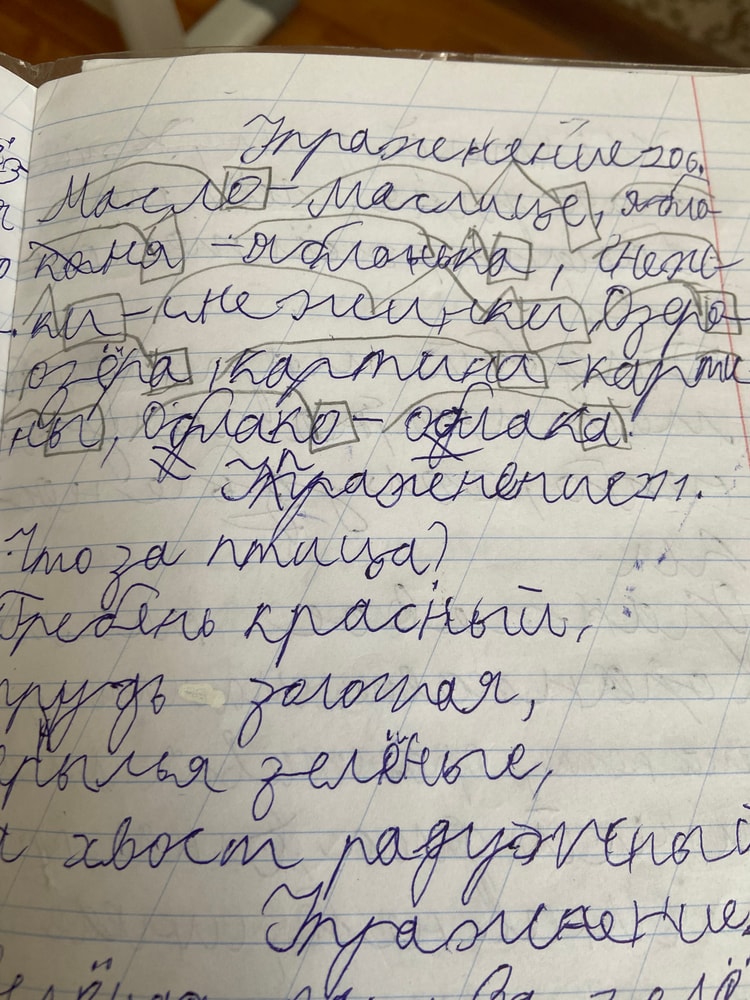 Упражнение 206.
Масло - маслице, ябло-
каня - яблонька, снеж-
ки - снежинки, Озеро -
озёра, картина - карти
ны, облако - облака.
Упражнение 211.
Что за птица?
Гребень красный,
грудь золотая,
крылья зелёные,
хвост радужный
Упражнение